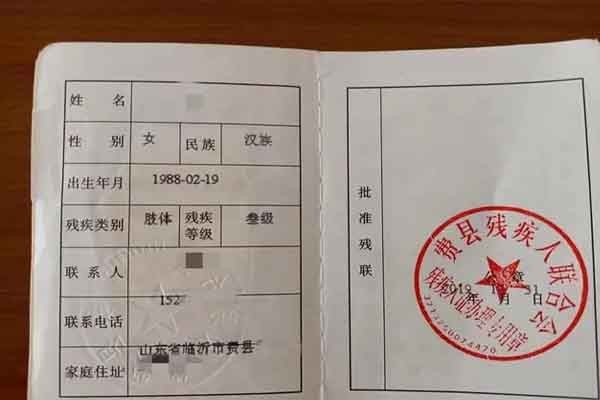 姓 名
性 别 女 民族 汉族
出生年月 1988-02-19
残疾类别 肢体 残疾等级 叁级
联系人
联系电话 152
家庭住址 山东省临沂市费县
批准残联
费县残疾人联合会
公 章
2019 年 月 31 日
残疾人证办理专用章